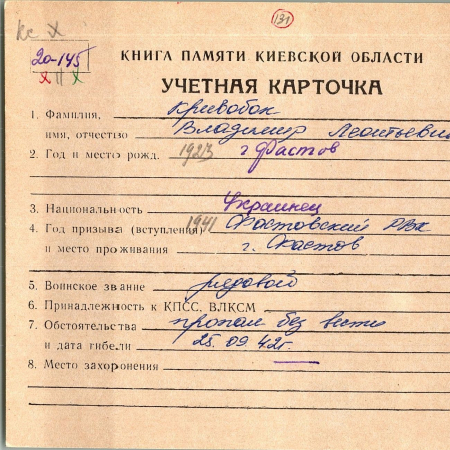 131
КС X
20-145
X II X
КНИГА ПАМЯТИ КИЕВСКОЙ ОБЛАСТИ
УЧЕТНАЯ КАРТОЧКА
1. Фамилия, Кривобок
имя, отчество Владимир Леонтьевич
2. Год и место рожд. 1923 г Фастов
3. Национальность Украинец
4. Год призыва (вступления) 1941 Фастовский РВК
и место проживания г. Фастов
5. Воинское звание рядовой
6. Принадлежность к КПСС, ВЛКСМ
7. Обстоятельства пропал без вести
и дата гибели 25.09.42г
8. Место захоронения